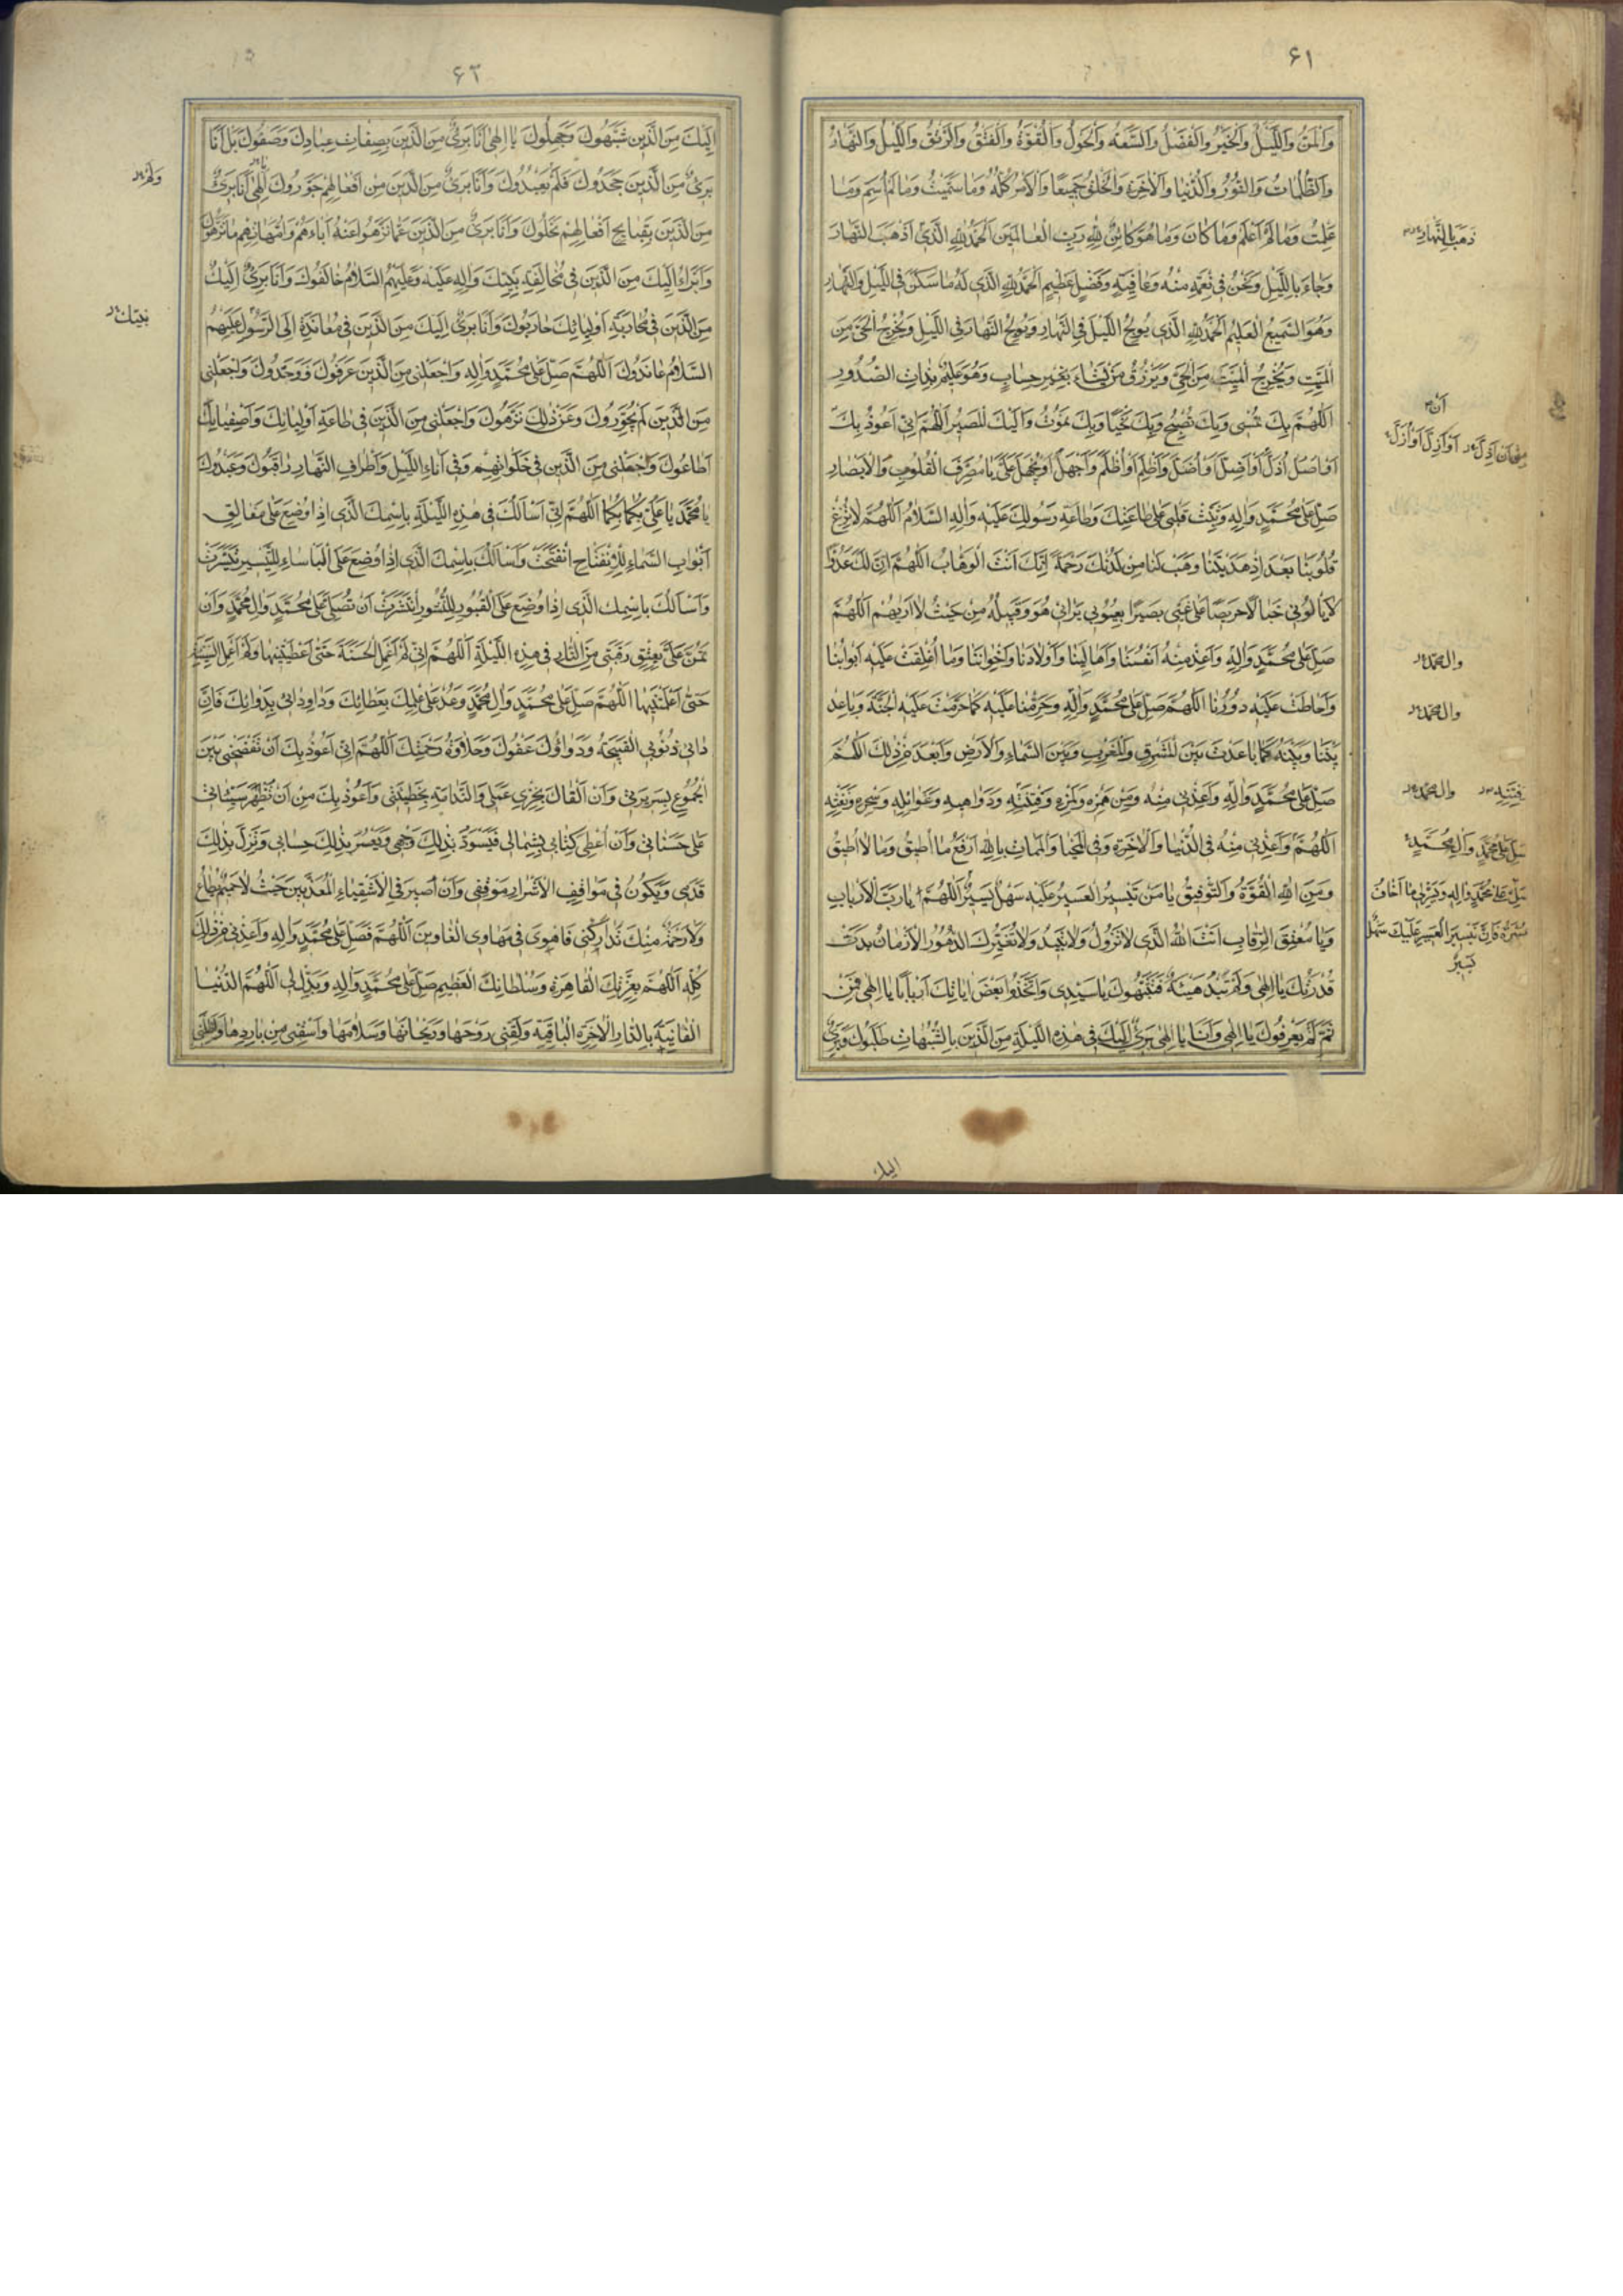 ٤١
وَالْمَنُّ وَاللَّيْلُ وَالْخَيْرُ وَالْفَضْلُ وَالسَّعَةُ وَالْحَوْلُ وَالْقُوَّةُ وَالْفَتْقُ وَالرَّتْقُ وَاللَّيْلُ وَالنَّهَارُ
وَالظُّلُمَاتُ وَالنُّورُ وَالدُّنْيَا وَالْآخِرَةُ وَالْخَلْقُ جَمِيعًا وَالْأَمْرُ كُلُّهُ وَمَا سَمَّيْتُ وَمَا لَمْ أُسَمِّ وَمَا
عَلِمْتُ وَمَا لَمْ أَعْلَمْ وَمَا كَانَ وَمَا هُوَ كَائِنٌ لِلَّهِ رَبِّ الْعَالَمِينَ الْحَمْدُ لِلَّهِ الَّذِي أَذْهَبَ النَّهَارَ
ذهب بالنهار
وَجَاءَ بِاللَّيْلِ وَنَحْنُ فِي نِعْمَةٍ مِنْهُ وَعَافِيَةٍ وَفَضْلٍ عَظِيمٍ الْحَمْدُ لِلَّهِ الَّذِي لَهُ مَا سَكَنَ فِي اللَّيْلِ وَالنَّهَارِ
وَهُوَ السَّمِيعُ الْعَلِيمُ الْحَمْدُ لِلَّهِ الَّذِي يُولِجُ اللَّيْلَ فِي النَّهَارِ وَيُولِجُ النَّهَارَ فِي اللَّيْلِ وَيُخْرِجُ الْحَيَّ مِنَ
الْمَيِّتِ وَيُخْرِجُ الْمَيِّتَ مِنَ الْحَيِّ وَيَرْزُقُ مَنْ يَشَاءُ بِغَيْرِ حِسَابٍ وَهُوَ عَلِيمٌ بِذَاتِ الصُّدُورِ
اللَّهُمَّ بِكَ نُمْسِي وَبِكَ نُصْبِحُ وَبِكَ نَحْيَا وَبِكَ نَمُوتُ وَإِلَيْكَ الْمَصِيرُ اللَّهُمَّ إِنِّي أَعُوذُ بِكَ
أن
أَذِلَّ أَوْ أُذَلَّ
أَوْ أَضِلَّ أَوْ أُضَلَّ وَأَظْلِمَ أَوْ أُظْلَمَ وَأَجْهَلَ أَوْ يُجْهَلَ عَلَيَّ يَا مُصَرِّفَ الْقُلُوبِ وَالْأَبْصَارِ
صَلِّ عَلَى مُحَمَّدٍ وَآلِهِ وَثَبِّتْ قَلْبِي عَلَى طَاعَتِكَ وَطَاعَةِ رَسُولِكَ عَلَيْهِ وَآلِهِ السَّلَامُ اللَّهُمَّ لَا تُزِغْ
قُلُوبَنَا بَعْدَ إِذْ هَدَيْتَنَا وَهَبْ لَنَا مِنْ لَدُنْكَ رَحْمَةً إِنَّكَ أَنْتَ الْوَهَّابُ اللَّهُمَّ إِنَّ لَكَ عَدُوًّا
لَا يَأْلُونِي خَبَالًا حَرِيصًا عَلَى غَيِّي بَصِيرًا بِعُيُوبِي يَرَانِي هُوَ وَقَبِيلُهُ مِنْ حَيْثُ لَا أَرَاهُمْ اللَّهُمَّ
صَلِّ عَلَى مُحَمَّدٍ وَآلِهِ وَأَعِذْ مِنْهُ أَنْفُسَنَا وَأَهَالِيَنَا وَأَوْلَادَنَا وَإِخْوَانَنَا وَمَا أُغْلِقَتْ عَلَيْهِ أَبْوَابُنَا
وال محمد
وَأَحَاطَتْ عَلَيْهِ دُورُنَا اللَّهُمَّ صَلِّ عَلَى مُحَمَّدٍ وَآلِهِ وَحَرِّمْنَا عَلَيْهِ كَمَا حَرَّمْتَ عَلَيْهِ الْجَنَّةَ وَبَاعِدْ
وال محمد
بَيْنَنَا وَبَيْنَهُ كَمَا بَاعَدْتَ بَيْنَ الْمَشْرِقِ وَالْمَغْرِبِ وَبَيْنَ السَّمَاءِ وَالْأَرْضِ وَأَبْعَدَ مِنْ ذَلِكَ اللَّهُمَّ
صَلِّ عَلَى مُحَمَّدٍ وَآلِهِ وَأَعِذْنِي مِنْهُ وَمِنْ هَمْزِهِ وَلَمْزِهِ وَفِتْنَتِهِ وَدَوَاهِيهِ وَغَوَائِلِهِ وَسِحْرِهِ وَنَفْثِهِ
وال محمد
فتنته
اللَّهُمَّ وَأَعِذْنِي مِنْهُ فِي الدُّنْيَا وَالْآخِرَةِ وَفِي الْمَحْيَا وَالْمَمَاتِ بِاللَّهِ أَرْفَعُ مَا أُطِيقُ وَمَا لَا أُطِيقُ
صَلِّ عَلَى مُحَمَّدٍ وَآلِ مُحَمَّدٍ
وَمِنَ اللَّهِ الْقُوَّةُ وَالتَّوْفِيقُ يَا مَنْ تَيْسِيرُ الْعَسِيرِ عَلَيْهِ سَهْلٌ يَسِيرٌ اللَّهُمَّ يَا رَبَّ الْأَرْبَابِ
صَلِّ عَلَى مُحَمَّدٍ وَآلِهِ وَيَسِّرْ لِي مَا أَخَافُ
عُسْرَهُ فَإِنَّ تَيْسِيرَ الْعَسِيرِ عَلَيْكَ سَهْلٌ
يَسِيرٌ
وَيَا مُعْتِقَ الرِّقَابِ أَنْتَ اللَّهُ الَّذِي لَا تَزُولُ وَلَا تَبِيدُ وَلَا تُغَيِّرُكَ الدُّهُورُ الْأَزْمَانُ بَدَتْ
قُدْرَتُكَ يَا إِلَهِي وَلَمْ تَبْدُ هَيْئَةٌ فَشَبَّهُوكَ يَا سَيِّدِي وَاتَّخَذُوا بَعْضَ آيَاتِكَ أَرْبَابًا يَا إِلَهِي فَمِنْ
ثَمَّ لَمْ يَعْرِفُوكَ يَا إِلَهِي وَأَنَا يَا إِلَهِي بَرِيءٌ إِلَيْكَ فِي هَذِهِ اللَّيْلَةِ مِنَ الَّذِينَ بِالشُّبُهَاتِ طَلَبُوكَ وَبَرِيءٌ
اليك
٤٢
إِلَيْكَ مِنَ الَّذِينَ شَبَّهُوكَ وَجَهِلُوكَ يَا إِلَهِي أَنَا بَرِيءٌ مِنَ الَّذِينَ بِصِفَاتِ عِبَادِكَ وَصَفُوكَ بَلْ أَنَا
بَرِيءٌ مِنَ الَّذِينَ جَحَدُوكَ فَلَمْ يَعْبُدُوكَ وَأَنَا بَرِيءٌ مِنَ الَّذِينَ مِنْ أَفْعَالِهِمْ جَوَّرُوكَ إِلَهِي أَنَا بَرِيءٌ
ولم
مِنَ الَّذِينَ بِقَبَائِحِ أَفْعَالِهِمْ نَحَلُوكَ وَأَنَا بَرِيءٌ مِنَ الَّذِينَ عَمَّا نَزَّهُوا عَنْهُ آبَاءَهُمْ وَأُمَّهَاتِهِمْ مَا نَزَّهُوكَ
وَأَبْرَأُ إِلَيْكَ مِنَ الَّذِينَ فِي مُخَالَفَةِ نَبِيِّكَ وَآلِهِ عَلَيْهِ وَعَلَيْهِمُ السَّلَامُ خَالَفُوكَ وَأَنَا بَرِيءٌ إِلَيْكَ
نبيك
مِنَ الَّذِينَ فِي مُحَارَبَةِ أَوْلِيَائِكَ حَارَبُوكَ وَأَنَا بَرِيءٌ إِلَيْكَ مِنَ الَّذِينَ فِي مُعَانَدَةِ آلِ الرَّسُولِ عَلَيْهِمُ
السَّلَامُ عَانَدُوكَ اللَّهُمَّ صَلِّ عَلَى مُحَمَّدٍ وَآلِهِ وَاجْعَلْنِي مِنَ الَّذِينَ عَرَفُوكَ فَوَحَّدُوكَ وَاجْعَلْنِي
مِنَ الَّذِينَ لَمْ يُجَوِّرُوكَ وَعَنْ ذَلِكَ نَزَّهُوكَ وَاجْعَلْنِي مِنَ الَّذِينَ فِي طَاعَةِ أَوْلِيَائِكَ وَأَصْفِيَائِكَ
أَطَاعُوكَ وَاجْعَلْنِي مِنَ الَّذِينَ فِي خَلَوَاتِهِمْ وَفِي آنَاءِ اللَّيْلِ وَأَطْرَافِ النَّهَارِ رَاقَبُوكَ وَعَبَدُوكَ
يَا مُحَمَّدُ يَا عَلِيُّ بِكُمَا بِكُمَا اللَّهُمَّ إِنِّي أَسْأَلُكَ فِي هَذِهِ اللَّيْلَةِ بِاسْمِكَ الَّذِي إِذَا وُضِعَ عَلَى مَغَالِقِ
أَبْوَابِ السَّمَاءِ لِلِانْفِتَاحِ انْفَتَحَتْ وَأَسْأَلُكَ بِاسْمِكَ الَّذِي إِذَا وُضِعَ عَلَى الْبَأْسَاءِ لِلتَّيْسِيرِ تَيَسَّرَتْ
وَأَسْأَلُكَ بِاسْمِكَ الَّذِي إِذَا وُضِعَ عَلَى الْقُبُورِ لِلنُّشُورِ انْتَشَرَتْ أَنْ تُصَلِّيَ عَلَى مُحَمَّدٍ وَآلِ مُحَمَّدٍ وَأَنْ
تَمُنَّ عَلَيَّ بِعِتْقِ رَقَبَتِي مِنَ النَّارِ فِي هَذِهِ اللَّيْلَةِ اللَّهُمَّ إِنِّي لَمْ أَعْمَلِ الْحَسَنَةَ حَتَّى أَعْطَيْتَنِيهَا وَلَمْ أَعْمَلِ السَّيِّئَةَ
حَتَّى أَعْلَمْتَنِيهَا اللَّهُمَّ صَلِّ عَلَى مُحَمَّدٍ وَآلِ مُحَمَّدٍ وَعُدْ عَلَى عِلْمِكَ بِعَطَائِكَ وَدَاوِ دَائِي بِدَوَائِكَ فَإِنَّ
دَائِي ذُنُوبِي الْقَبِيحَةُ وَدَوَاؤُكَ عَفْوُكَ وَحَلَاوَةُ رَحْمَتِكَ اللَّهُمَّ إِنِّي أَعُوذُ بِكَ أَنْ تَفْضَحَنِي بَيْنَ
الْجُمُوعِ بِسَرِيرَتِي وَأَنْ أَلْقَاكَ بِخِزْيِ عَمَلِي وَالنَّدَامَةِ بِخَطِيئَتِي وَأَعُوذُ بِكَ مِنْ أَنْ تُظْهِرَ سَيِّئَاتِي
عَلَى حَسَنَاتِي وَأَنْ أُعْطَى كِتَابِي بِشِمَالِي فَيَسْوَدَّ بِذَلِكَ وَجْهِي وَيَعْسُرَ بِذَلِكَ حِسَابِي وَتَزِلَّ بِذَلِكَ
قَدَمِي وَيَكُونَ فِي مَوَاقِفِ الْأَشْرَارِ مَوْقِفِي وَأَنْ أَصِيرَ فِي الْأَشْقِيَاءِ الْمُعَذَّبِينَ حَيْثُ لَا حَمِيمٌ يُطَاعُ
وَلَا رَحْمَةٌ مِنْكَ تَدَارَكُنِي فَأَهْوِيَ فِي مَهَاوِي الْغَاوِينَ اللَّهُمَّ فَصَلِّ عَلَى مُحَمَّدٍ وَآلِهِ وَأَعِذْنِي مِنْ ذَلِكَ
كُلِّهِ اللَّهُمَّ بِعِزَّتِكَ الْقَاهِرَةِ وَسُلْطَانِكَ الْعَظِيمِ صَلِّ عَلَى مُحَمَّدٍ وَآلِهِ وَبَدِّلْ لِي اللَّهُمَّ الدُّنْيَا
الْفَانِيَةَ بِالدَّارِ الْآخِرَةِ الْبَاقِيَةِ وَلَقِّنِي رَوْحَهَا وَرَيْحَانَهَا وَسَلَامَهَا وَاسْقِنِي مِنْ بَارِدِهَا وَأَظِلَّنِي